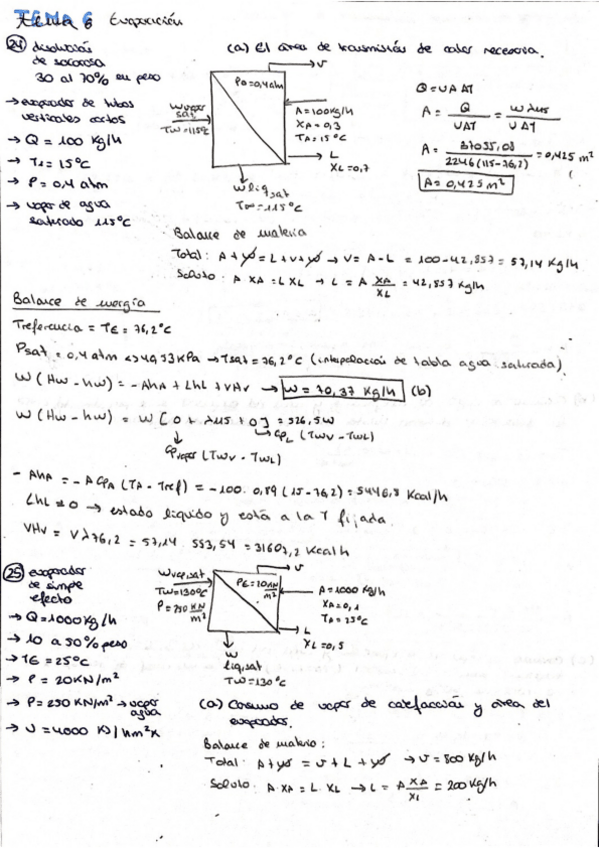 TEMA 6
Tema 6 Evaporación
24 disolución de sacarosa 30 al 70% en peso
→ evaporador de tubos verticales cortos
→ Q = 100 Kg/h
→ T1 = 15°C
→ P = 0,4 atm
→ vapor de agua saturado 115°C
(a) El área de transmisión de calor necesaria.
V
P0=0,4 atm
Wvapor sat
TW=115°C
A=100Kg/h
XA=0,3
TA=15°C
L
XL=0,7
W liq,sat
TW=115°C
Q=UAΔT
A = Q / UΔT = Wλ115 / UΔT
A = 37055,08 / 2246(115-76,2) = 0,425 m²
A=0,425 m²
Balance de materia
Total: A+W=L+V+W → V=A-L = 100-42,857 = 57,14 Kg/h
Soluto: A XA = L XL → L = A XA/XL = 42,857 Kg/h
Balance de energía
Treferencia = TE = 76,2°C
Psat = 0,4 atm <> 40,53 KPa → Tsat = 76,2°C (interpolación de tabla agua saturada)
W (Hw - hw) = -AhA + LhL + VHv → W = 70,37 Kg/h (b)
W (Hw - hw) = W [0 + λ115 + 0] = 526,5W
CPL (TWV - TWL)
CPvapor (TWV - TWL)
- AhA = - A CPA (TA - Tref) = -100. 0,89 (15-76,2) = 5446,8 Kcal/h
LhL = 0 → estado líquido y está a la T fijada.
VHv = Vλ76,2 = 57,14 . 553,54 = 31607,2 Kcal/h
25 evaporador de simple efecto
→ Q=1000Kg/h
→ 10 a 50% peso
→ TE = 25°C
→ P = 20KN/m²
→ P = 250 KN/m² → vapor agua
→ U = 4000 KJ/hm²K
Wvap,sat
TW=130°C
P=250 KN/m²
V
PE=20KN/m²
A=1000 Kg/h
XA=0,1
TA=25°C
L
XL=0,5
W
liq,sat
TW=130°C
(a) Consumo de vapor de calefacción y área del evaporador.
Balance de materia:
Total: A+W = V+L+W → V=800 Kg/h
Soluto: A XA = L. XL → L = A XA/XL = 200 Kg/h